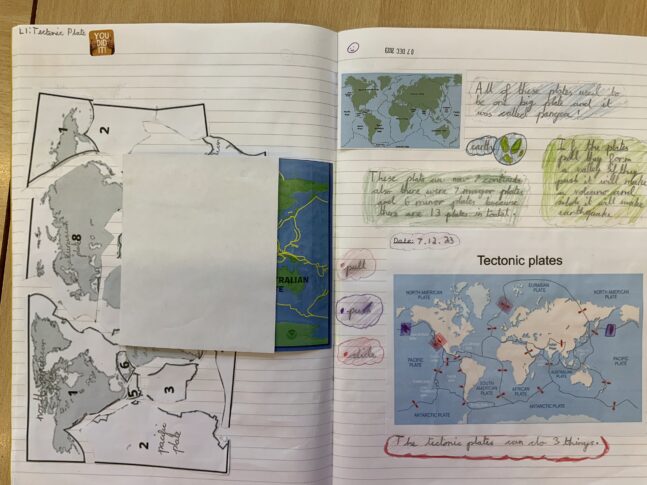 L1: Tectonic Plate
YOU
DID
IT!
1
2
8
1
6
5
3
2
pacific
plate
RALIAN
TE
07 DEC 2023
All of these plates used to
be one big plate and it
was called pangea.
earth
If the plates
pull they form
a valley if they
push it will make
volcano and
slide it will make
earthquake.
These plate are now 7 continents
also there were 7 mayor plates
and 6 minor plates because
there are 13 plates in total.
Date: 7.12.23
pull
push
slide
Tectonic plates
NORTH AMERICAN
PLATE
EURASIAN
PLATE
NORTH AMERICAN
PLATE
PACIFIC
PLATE
PACIFIC
PLATE
SOUTH
AMERICAN
PLATE
AFRICAN
PLATE
AUSTRALIAN
PLATE
ANTARCTIC PLATE
ANTARCTIC PLATE
The tectonic plates can do 3 things.